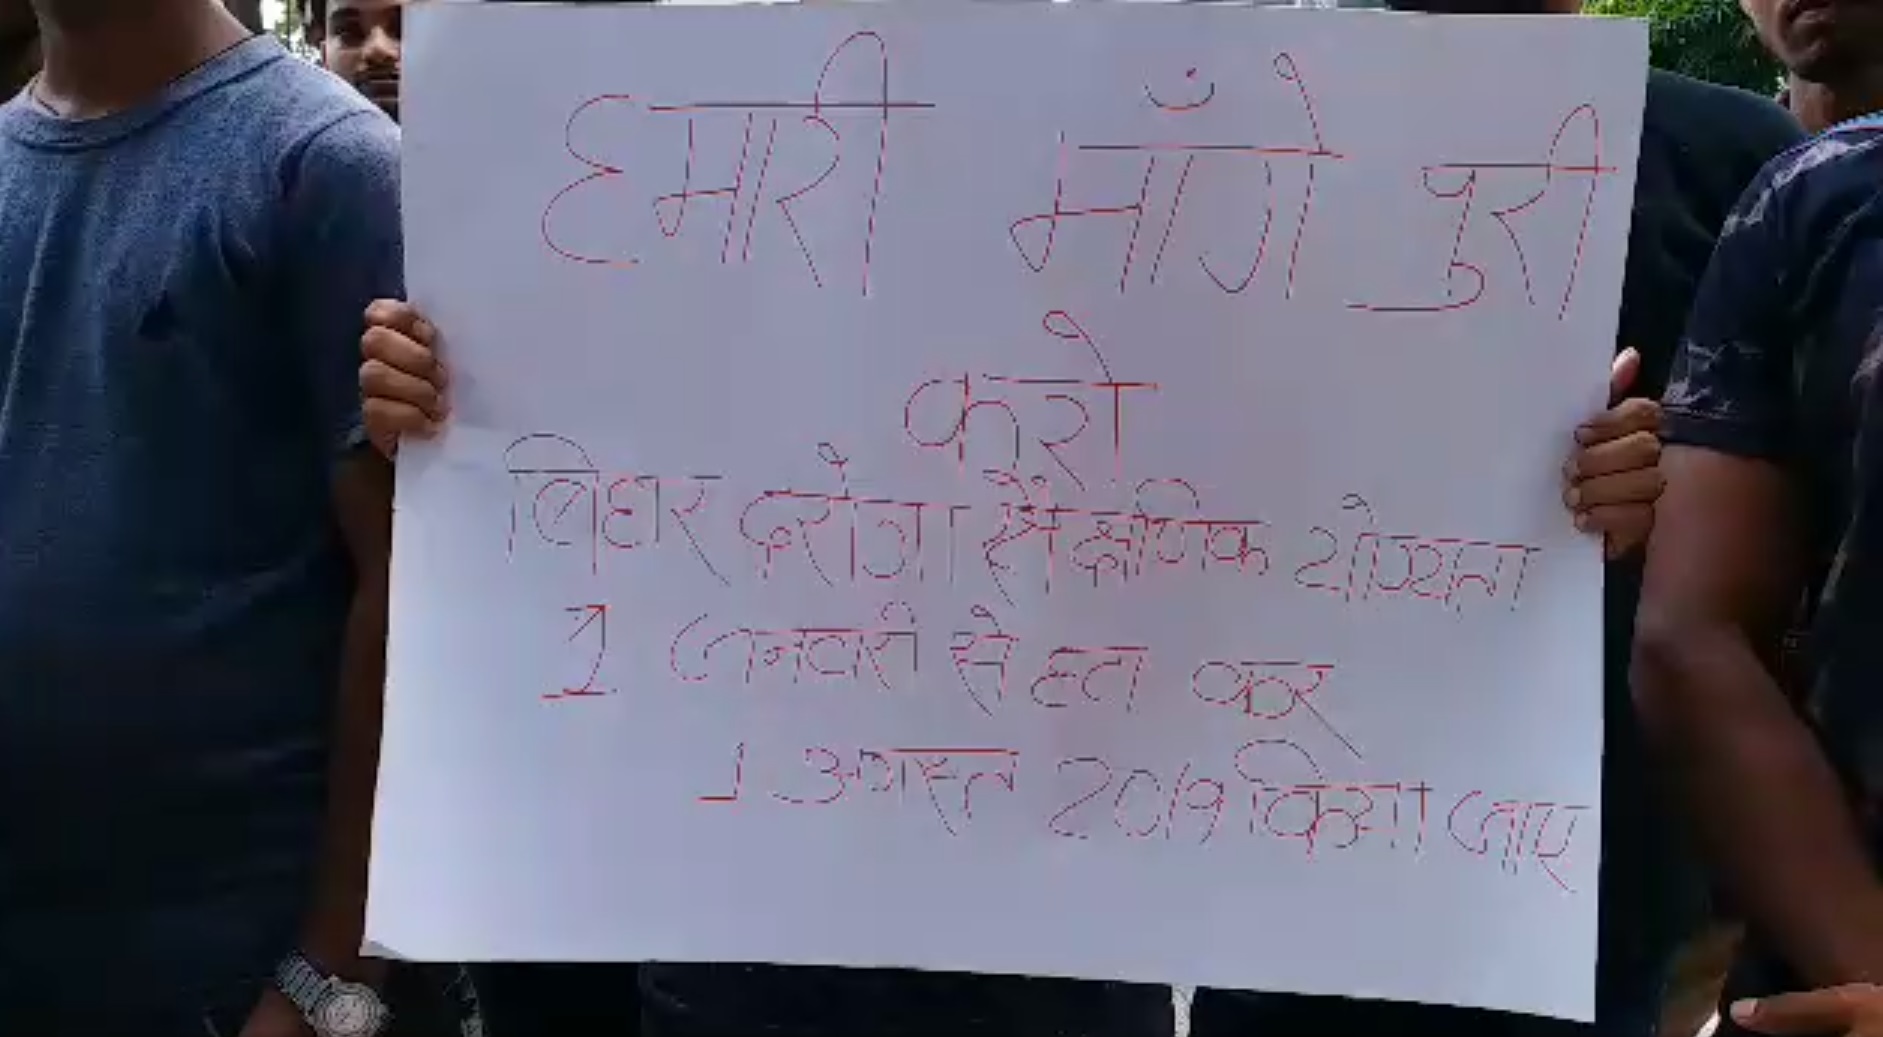 हमारी माँगे पुरी
करो
बिहार दरोगा सैक्षणिक योग्यता
1 जनवरी से हटा कर
1 अगस्त 2019 किया जाए